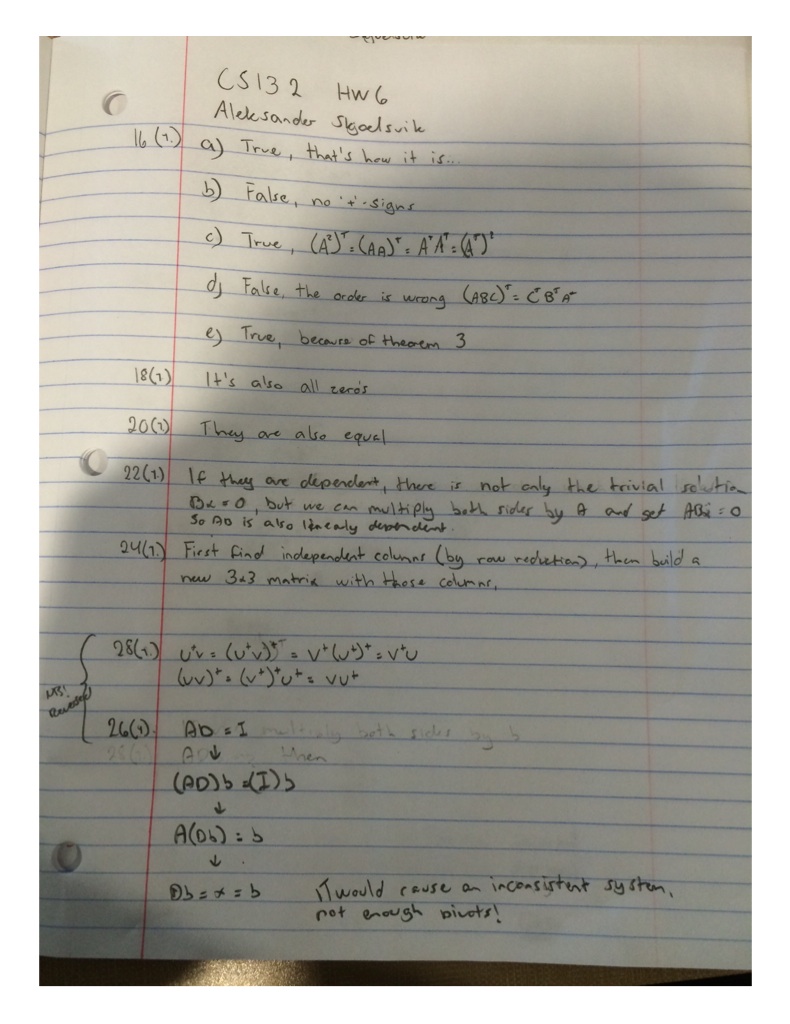 CS132 HW6
Aleksander Skjoelsvik
16(1.) a) True, that's how it is...
b) False, no '+'-signs
c) True, (A²)ᵀ = (AA)ᵀ = AᵀAᵀ = (Aᵀ)²
d) False, the order is wrong (ABC)ᵀ = CᵀBᵀAᵀ
e) True, because of theorem 3
18(1) It's also all zero's
20(1) They are also equal
22(1) If they are dependent, there is not only the trivial solution
Bx = 0, but we can multiply both sides by A and get ABx = 0
So AB is also linearly dependent.
24(1.) First find independent columns (by row reduction), then build a
new 3x3 matrix with those columns,
28(1.) Uᵀv = (Uᵀv)ᵀ = Vᵀ(Uᵀ)ᵀ = VᵀU
(UV)ᵀ = (Vᵀ)ᵀUᵀ = VUᵀ
NB!
26(1). AD = I multiply both sides by b
28(1) AD then
↓
(AD)b = (I)b
↓
A(Db) = b
↓
Db = x = b iT would cause an inconsistent system,
not enough pivots!